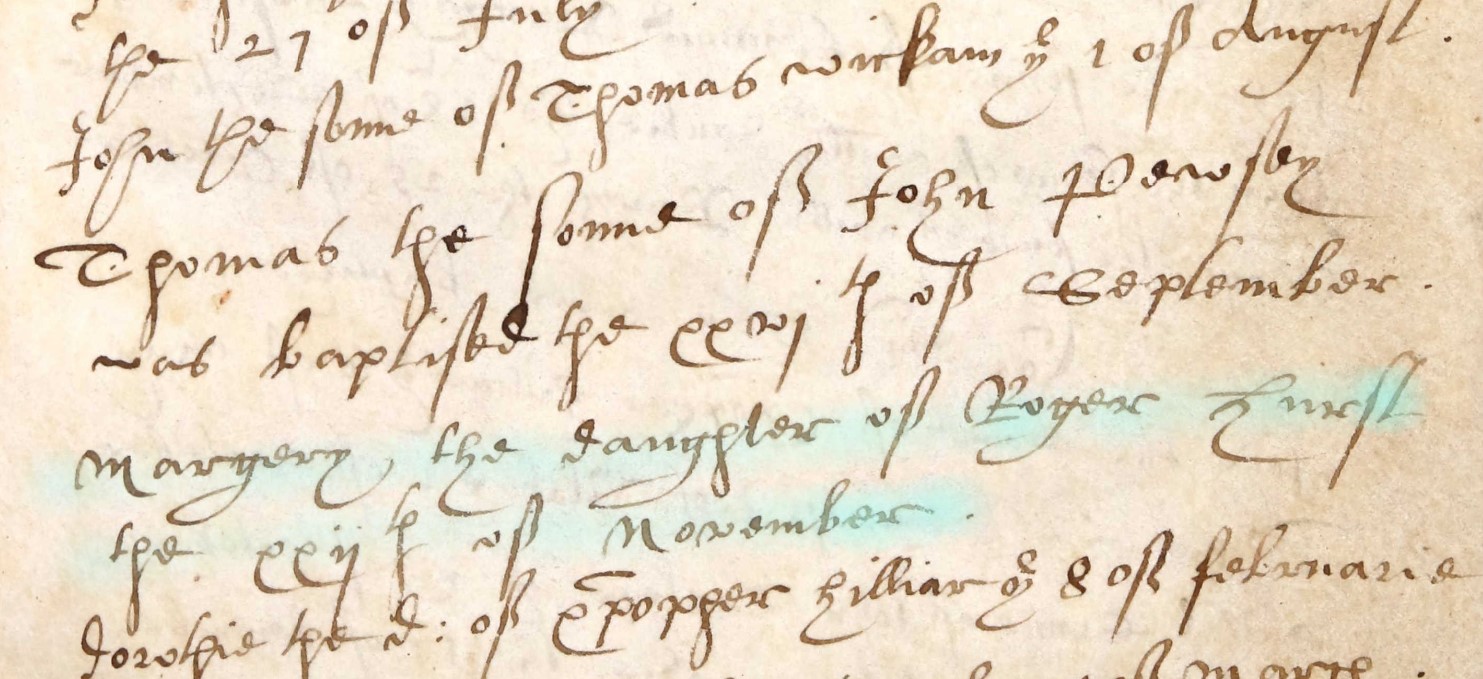 the 27 of July
John the sonne of Thomas wickam yͤ 1 of August.
Thomas the sonne of John Pewsey
was baptised the xxvj th of September.
Margery, the daughter of Roger Hurst
the xxij th of November.
Dorothie the d: of Xpopher hilliar yͤ 8 of februarie
of March.